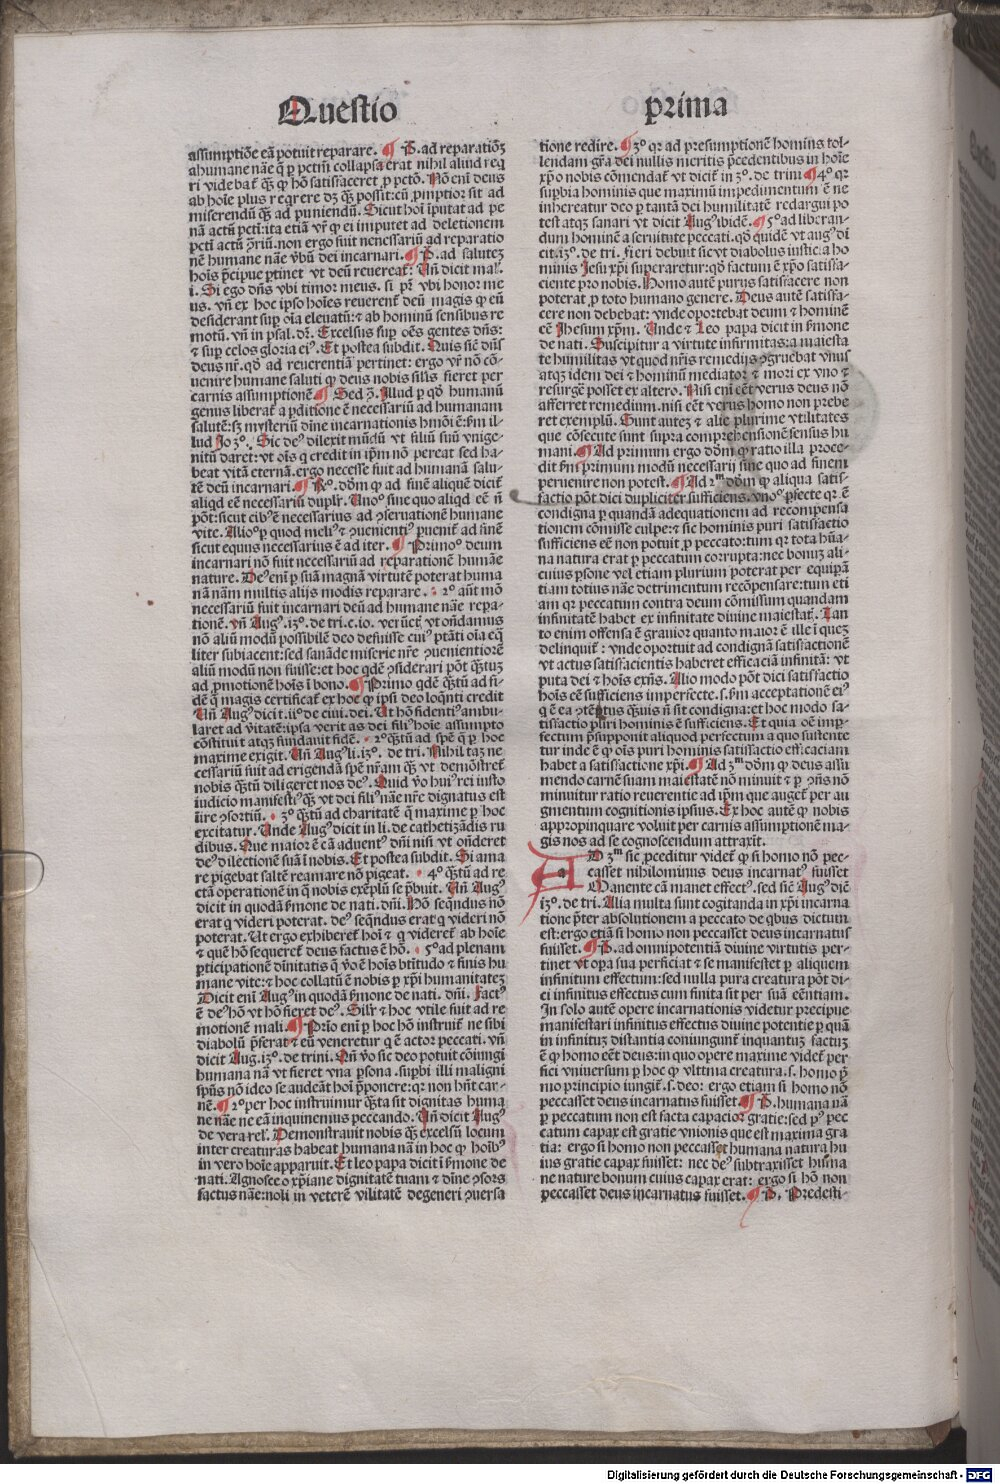 Questio prima
assumptiõe eã potuit reparare. ¶ P. ad reparatiõʒ
a humane nãe q̃ p pctm̃ collapsa erat nihil aliud req
ri videbat̃ q̃ʒ ꝙ hõ satisfaceret ꝓ pctõ. Nõ enĩ deus
ab hoĩe plus reqrere dʒ q̃ʒ possit: cũ ꝓmptior sit ad
miserendũ q̃ʒ ad puniendũ. Sicut hoĩ ĩputat ad pe
nã actũ pcti: ita etiã vr̃ ꝙ ei imputet ad deletionem
pcti actũ ꝯriũ. non ergo fuit nenessariũ ad reparatio
nẽ humane nãe vb̃ũ dei incarnari. ¶ P. ad salutez
hoĩs p̃cipue ꝑtinet vt deũ revereat̃: Uñ dicit mal.
i. Si ego dñs vbi timor meus. si pr̃ vbi honor me
us. vñ ex hoc ipso hoĩes reverent̃ deũ magis ꝙ eũ
desiderant sup oĩa elevatũ: ⁊ ab hominũ sensibus re
motũ. vñ in psal. dr̃. Excelsus sup oẽs gentes dñs:
⁊ sup celos gloria eiꝰ. Et postea subdit. Quis sic̃ dñs
deus nr̃. qd̃ ad reverentiã pertinet: ergo vr̃ nõ cõ-
venire humane saluti ꝙ deus nobis silis̃ fieret per
carnis assumptionẽ ¶ Sed ꝯ̃. Illud p qd̃ humanũ
genus liberat̃ a ꝑditione ẽ necessariũ ad humanam
salutẽ: sʒ mysteriũ dĩne incarnationis hmõi ẽ: fm il
lud Jo 3º. Sic deꝰ dilexit mũdũ vt filiũ suũ vnige-
nitũ daret: vt oĩs q credit in ip̃m nõ pereat sed ha-
beat vitã eternã. ergo necesse fuit ad humanã salu-
tẽ deũ incarnari. ¶ Rº. dõm ꝙ ad finẽ aliquẽ dicit̃
aliqd eẽ necessariũ duplr̃. Unoº sine quo aliqd eẽ ñ
põt: sicut cibꝰ ẽ necessarius ad ꝯservationẽ humane
vite. Alioº p quod meliꝰ ⁊ ꝯvenientiꝰ pvenit̃ ad finẽ
sicut equus necessarius ẽ ad iter. ¶ Primoº deum
incarnari nõ fuit necessariũ ad reparationẽ humãe
nature. Deꝰ enĩ p suã magnã virtutẽ poterat huma
nã nãm multis alijs modis reparare. 2º aũt mõ
necessariũ fuit incarnari deũ ad humane nãe repa-
tionẽ. vñ Augꝰ. i3º. de tri. c. io. verũtñ vt oñdamus
nõ aliũ modũ possibilẽ deo defuisse cuiꝰ ptãti oĩa eq̃
liter subiacent: sed sanãde miserie nr̃e ꝯvenientiorẽ
aliũ modũ non fuisse: et hoc qdẽ ꝯsiderari põt q̃ʒtuʒ
ad ꝓmotionẽ hoĩs ĩ bono. ¶ Primo qdẽ q̃ʒtũ ad fi-
dẽ q̃ magis certificat̃ ex hoc ꝙ ipsi deo loq̃nti credit
Uñ Augꝰ dicit. ii º de ciui. dei. Ut hõ fidentiꝰ ambu-
laret ad v̓itatẽ: ipsa veritas dei filiꝰ hoĩe assumpto
cõstituit atqʒ fundavit fidẽ. 2º q̃ʒtũ ad spẽ q̃ p hoc
maxime erigit̃. Uñ Augꝰ li. i3º. de tri. Nihil taʒ ne
cessariũ fuit ad erigendã spẽ nr̃am q̃ʒ vt demõstret̃
nobis q̃ʒtũ diligeret nos deꝰ. Quid v̓o huiꝰ rei isto
iudicio manifestiꝰ q̃ʒ vt dei filiꝰ nãe nr̃e dignatus est
inire ꝯsortiũ. 3º q̃ʒtũ ad charitatẽ q̃ maxime p hoc
excitatur. Unde Augꝰ dicit in li. de cathetizãdis ru
dibus. Que maior ẽ cã advent̃ꝰ dñi nisi vt oñderet
deꝰ dilectionẽ suã ĩ nobis. Et postea subdit. Si ama
re pigebat saltẽ reamare nõ pigeat. 4º q̃ʒtũ ad re
ctã operationẽ in q̃ nobis exẽplũ se p̃buit. Uñ Augꝰ
dicit in quodã ẜmone de nati. dñi. Hõ seq̃ndus nõ
erat q videri poterat. deꝰ seq̃ndus erat q videri nõ
poterat. Ut ergo exhiberet̃ hoĩ ⁊ q videret̃ ab hoĩe
⁊ quẽ hõ sequeret̃ deus factus ẽ hõ. 5º ad plenam
ꝑticipationẽ dĩnitatis q̃ v̓o ẽ hoĩs btĩtudo ⁊ finis hu
mane vite: ⁊ hoc collatũ ẽ nobis p xp̃i humanitatez
Dicit enĩ Augꝰ in quodã ẜmone de nati. dñi. Factꝰ
ẽ deꝰ hõ vt hõ fieret deꝰ. Silr̃ ⁊ hoc vtile fuit ad re
motionẽ mali. ¶ Prĩo enĩ p hoc hõ instruit̃ ne sibi
diabolũ p̃ferat ⁊ eũ veneretur q ẽ actor peccati. vñ
dicit Aug. i3º. de trini. Qñ v̓o sic deo potuit cõiungi
humana nã vt fieret vna ꝑsona. supbi illi maligni
spũs nõ ideo se audeãt hoĩ p̃ponere: qr non hñt car-
nẽ. ¶ 2º per hoc instruimur q̃ʒta sit dignitas huma
ne nãe ne eã inquinemus peccando. Uñ dicit Augꝰ
de vera rel. Demonstravit nobis q̃ʒ excelsũ locum
inter creaturas habeat humana nã in hoc ꝙ hoĩbꝰ
in vero hoĩe apparuit. Et leo papa dicit ĩ ẜmone de
nati. Agnosce o xp̃iane dignitatẽ tuam ⁊ dĩne ꝯsors
factus nãe: noli in veterẽ vilitatẽ degeneri ꝯversa
tione redire. ¶ 3º qr ad presumptionẽ hominis tol-
lendam gr̃a dei nullis meritis p̃cedentibus in hoĩe
xp̃o nobis cõmendat̃ vt dicit̃ in i3º. de trini ¶ 4º qr
supbia hominis que maximũ impedimentum ẽ ne
inhereatur deo p tantã dei humilitatẽ redargui po
test atqʒ sanari vt dicit Augꝰ ibidẽ. ¶ 5º ad liberan-
dum hominẽ a servitute peccati. qd̃ quidẽ vt augꝰ di
cit. i3º. de tri. fieri debuit sic vt diabolus iusticia ho
minis Jesu xp̃i superaretur: qd̃ factum ẽ xp̃o satisfa-
ciente pro nobis. Homo autẽ purus satisfacere non
poterat ꝓ toto humano genere. Deus autẽ satisfa-
cere non debebat: vnde oportebat deum ⁊ hominẽ
eẽ Jhesum xp̃m. Unde ⁊ Leo papa dicit in ẜmone
de nati. Suscipitur a virtute infirmitas: a maiesta
te humilitas vt quod nr̃is remedijs ꝯgruebat vnus
atqʒ idem dei ⁊ hominũ mediator ⁊ mori ex vno ⁊
resurgẽ posset ex altero. Nisi enĩ eẽt verus deus nõ
afferret remedium. nisi eẽt verus homo non prebe
ret exemplũ. Sunt autez ⁊ alie plurime vtilitates
que cõsecute sunt supra comprehensionẽ sensus hu
mani. ¶ Ad primum ergo dõm ꝙ ratio illa proce-
dit fm̃ primum modũ necessarij sine quo ad finem
pervenire non potest. ¶ Ad 2ᵐ dõm ꝙ aliqua satis-
factio põt dici dupliciter sufficiens. vnoº ꝑfecte qr ẽ
condigna p quandã adequationem ad recompensa
tionem cõmisse culpe: ⁊ sic hominis puri satisfactio
sufficiens eẽ non potuit ꝓ peccato: tum qr tota hũa-
na natura erat p peccatum corrupta: nec bonuʒ ali-
cuius ꝑsone vel etiam plurium poterat per equipã
tiam totius nãe detrimentum recõpensare: tum eti
am qr peccatum contra deum cõmissum quandam
infinitatẽ habet ex infinitate divine maiestat̃. Tan
to enim offensa ẽ gravior quanto maior ẽ ille ĩ quez
delinquit̃: vnde oportuit ad condignã satisfactionẽ
vt actus satisfacientis haberet efficaciã infinitã: vt
puta dei ⁊ hoĩs exñs. Alio modo põt dici satisfactio
hoĩs eẽ sufficiens imperfecte. s. fm acceptationẽ eiꝰ
q ẽ ea ꝯtẽtus q̃uis ñ sit condigna: et hoc modo sa-
tisfactio puri hominis ẽ sufficiens. Et quia oẽ imp̃-
fectum p̃supponit aliquod perfectum a quo sustente
tur inde ẽ ꝙ oĩs puri hominis satisfactio efficaciam
habet a satisfactione xp̃i. ¶ Ad 3ᵐ dõm ꝙ deus assu
mendo carnẽ suam maiestatẽ nõ minuit ⁊ p ꝯñs nõ
minuitur ratio reverentie ad ip̃m que auget̃ per au
gmentum cognitionis ipsius. Ex hoc autẽ ꝙ nobis
appropinquare voluit per carnis assumptionẽ ma-
gis nos ad se cognoscendum attraxit.
AD 3ᵐ sic ꝓceditur videt̃ ꝙ si homo nõ pec-
casset nihilominus deus incarnatꝰ fuisset
Manente cã manet effectꝰ. sed sic̃ Augꝰ dic̃
i3º. de tri. Alia multa sunt cogitanda in xp̃i incarna
tione p̃ter absolutionem a peccato de qbus dictum
est: ergo etiã si homo non peccasset deus incarnatus
fuisset. ¶ P. ad omnipotentiã divine virtutis per-
tinet vt opa sua perficiat ⁊ se manifestet p aliquem
infinitum effectum: sed nulla pura creatura põt di-
ci infinitus effectus cum finita sit per suã eẽntiam.
In solo autẽ opere incarnationis videtur precipue
manifestari infinitus effectus divine potentie p quã
in infinituʒ distantia coniungunt̃ inquantuʒ factuʒ
ẽ ꝙ homo eẽt deus: in quo opere maxime videt̃ per
fici vniversum p hoc ꝙ vltima creatura. s. homo p̓
mo principio iungit̃. s. deo: ergo etiam si homo nõ
peccasset deus incarnatus fuisset. ¶ P. humana nã
p peccatum non est facta capacior gratie: sed pꝰ pec
catum capax est gratie vnionis que est maxima gra
tia: ergo si homo non peccasset humana natura hu
ius gratie capax fuisset: nec deꝰ subtraxisset huma
ne nature bonum cuius capax erat: ergo si hõ non
peccasset deus incarnatus fuisset. ¶ P. Predesti-
Digitalisierung gefördert durch die Deutsche Forschungsgemeinschaft - DFG